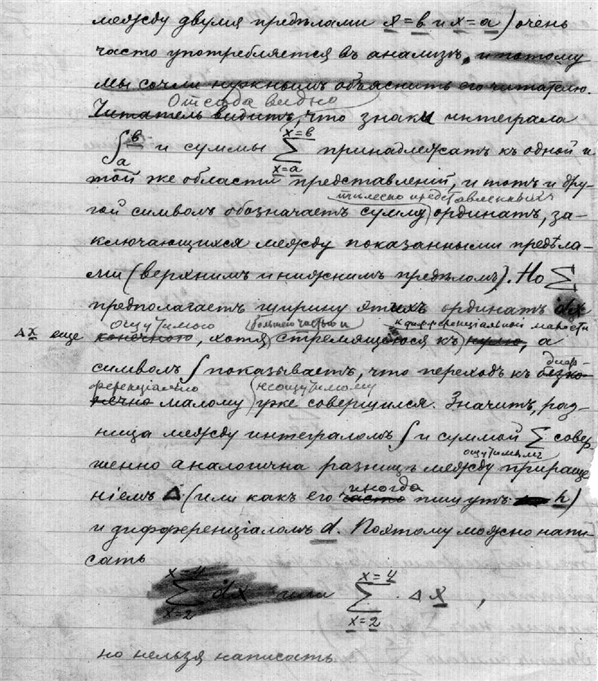 между двумя предѣлами x=в и x=a) очень
часто употребляется въ анализѣ, и потому
мы сочли нужнымъ объяснить его читателю.
Отсюда видно
Читатель видитъ, что знаки интеграла
∫ в a и суммы ∑ x=в x=a принадлежатъ къ одной и
той же области представленій, и тотъ и дру-
тѣлесно представленныхъ
гой символъ обозначаетъ сумму) ординатъ, за-
ключающихся между показанными предѣла-
ми (верхнимъ и нижнимъ предѣломъ). Но ∑
предполагаетъ ширину этихъ ординатъ dx
ощутимою (большей частью и къ дифференціальной малости
Δx еще конечною, хотя) стремящуюся къ) нулю, а
символъ ∫ показываетъ, что переходъ къ безко-
диф-
ференціально (неощутимому
нечно малому) уже совершился. Значитъ, раз-
ница между интеграломъ ∫ и суммой ∑ совер-
ощутимымъ
шенно аналогична разницѣ между прираще-
иногда
ніемъ Δ (или какъ его часто пишутъ h)
и дифференціаломъ d. Поэтому можно напи-
сать
∑ x=4 x=2 dx или ∑ x=4 x=2 · Δx ,
но нельзя написать